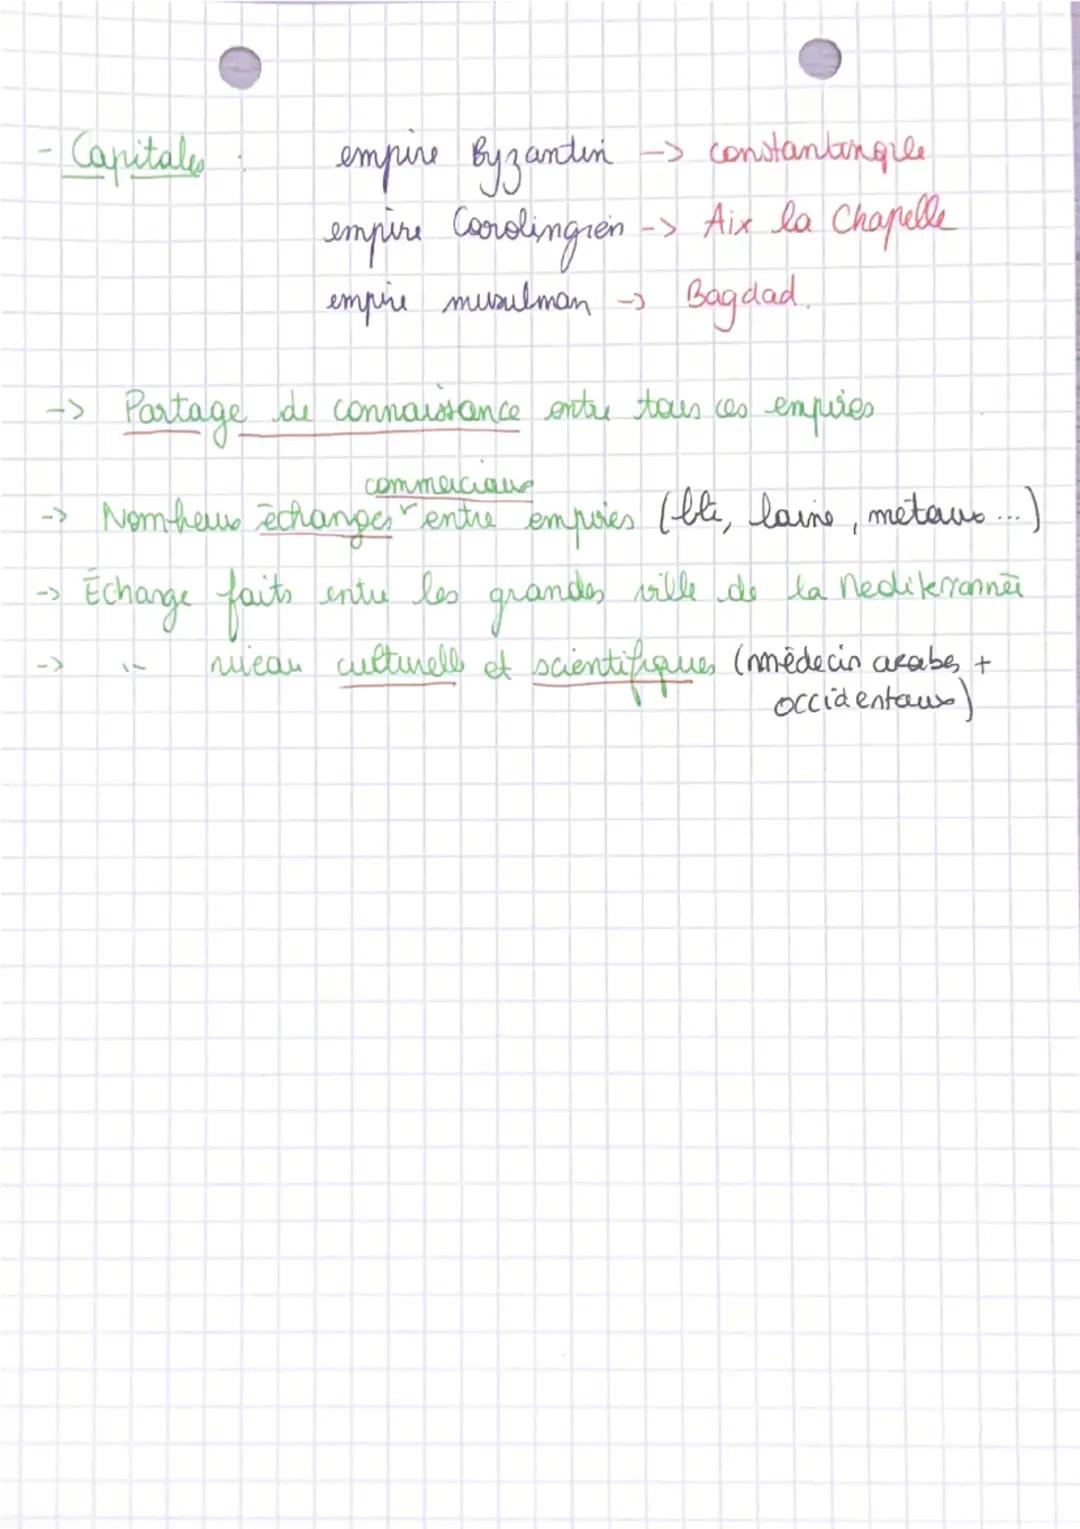 - Capitales : empire Byzantin -> constantinople
empire Carolingien -> Aix la Chapelle
empire musulman -> Bagdad.
-> Partage de connaissance entre tous ces empires
commerciaux
-> Nombreux échanges entre empires (blé, laine, métaux ...)
-> Échange faits entre les grandes ville de la Mediterrannée
-> " niveau culturells et scientifiques (médecin arabes +
occidentaux)